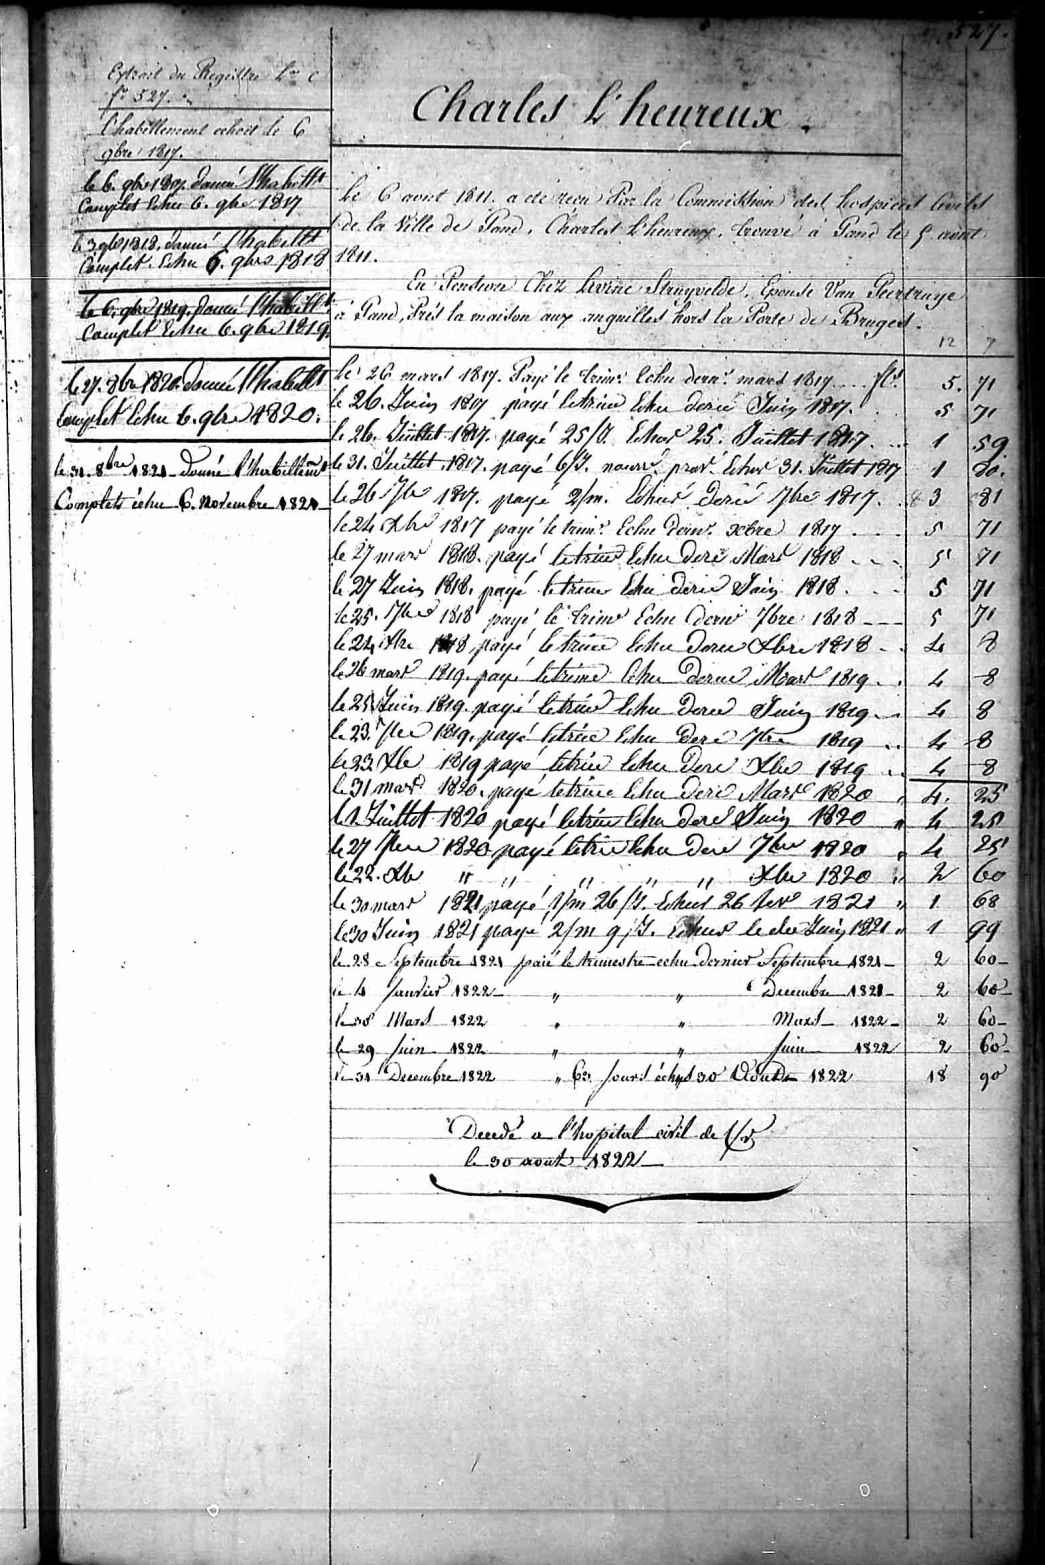 527.
Extrait du Registre L.re C
f° 527.
l'habillement echoit le 6
9bre 1817.
le 6. 9bre 1817. donné l'habillt
Complet Echu 6. 9bre 1817
le 3 9bre 1818. donné l'habillt
Complet. Echu 6. 9bre 1818
le 6. 9bre 1819. donné l'habillt
Complet Echu 6. 9bre 1819
le 27. 8bre 1820. donné l'habillt
Complet Echu 6. 9bre 1820.
le 31. 8bre 1821 donné l'habillemt
Complet échu 6. Novembre 1821
Charles L'heureux.
Le 6 aout 1811. a été recu Par la Commission des hospices Civils
de la Ville de Gand, Charles L'heureux, trouvé à Gand le 5 aout
1811.
En Pension Chez Livine Struyvelde, Epouse Van Peertruye
à Gand, Prés la maison aux anguilles hors la Porte de Bruges.
le 26 mars 1817. Payé le trimr. Echu dernr. mars 1817 fls 5. 71
le 26. Juin 1817 payé le trim Echu derñ Juin 1817. 5 71
le 26. Juillet 1817. payé 25/J. Echus 25. Juillet 1817. 1 59
le 31. Juillet 1817. payé 6/J. Echus 31. Juillet 1817 1 80.
le 26 7bre 1817. payé 2/m. Echus derñ 7bre 1817. 3 81
le 24 Xbre 1817 payé le trimr. Echu dernr. Xbre 1817 5 71
le 27 mars 1818. payé le trim Echu derñ Mars 1818 5 71
le 27 Juin 1818. payé le trim Echu derñ Juin 1818. 5 71
le 25. 7bre 1818 payé le trimr Echu dernr 7bre 1818 5 71
le 24 Xbre 1818 payé le trim Echu derñ Xbre 1818 4 8
le 26 mars 1819. payé le trim Echu derñ Mars 1819 4 8
le 25 Juin 1819. payé le trim Echu derñ Juin 1819 4 8
le 23. 7bre 1819. payé le trim Echu derñ 7bre 1819 4 8
le 23 Xbre 1819 payé le trim Echu derñ Xbre 1819 4 8
le 31 mars 1820. payé le trim Echu derñ Mars 1820 4. 25
le 1 Juillet 1820 payé le trim Echu derñ Juin 1820 " 4 25
le 27 7bre 1820 payé le trim Echu derñ 7bre 1820 " 4 25
le 22. Xbre " " " " " Xbre 1820 " 2 60
le 30 mars 1821 payé 1/m 26/J. Echus 26 1821 " 1 68
le 30 Juin 1821 payé 2/m 9/J. Echus le der Juin 1821 " 1 99
le 28 Septembre 1821 paié le trimestre echu dernier Septembre 1821 2 60
le 4 Janvier 1822 " " Decembre 1821 2 60
le 30 Mars 1822 " " Mars 1822 2 60
le 29 Juin 1822 " " Juin 1822 2 60
le 31 Decembre 1822 " Jours échus 30 Aout 1822 18 90
Decedé a l'hopital civil de
le 30 aout 1822